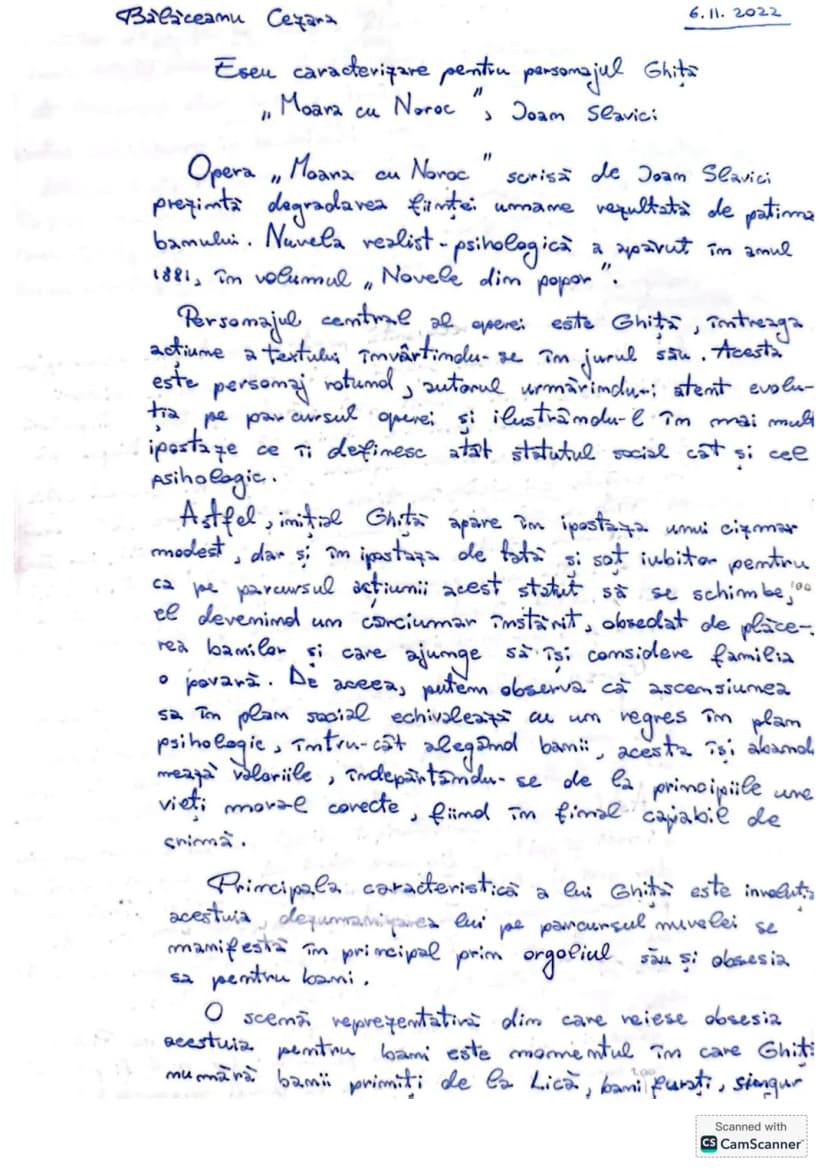 Bălăceanu Cezara
6.11.2022
Eseu caracterizare pentru personajul Ghiță
„Moara cu Noroc”, Ioan Slavici
Opera „Moara cu Noroc” scrisă de Ioan Slavici
prezintă degradarea ființei umane rezultată de patima
banului. Nuvela realist-psihologică a apărut în anul
1881, în volumul „Novele din popor”.
Personajul central al operei este Ghiță, întreaga
acțiune a textului învârtindu-se în jurul său. Acesta
este personaj rotund, autorul urmărindu-i atent evolu-
ția pe parcursul operei și ilustrându-l în mai mult
ipostaze ce îi definesc atât statutul social cât și cel
psihologic.
Astfel, inițial Ghiță apare în ipostaza unui cizmar
modest, dar și în ipostaza de tată și soț iubitor pentru
ca pe parcursul acțiunii acest statut să se schimbe,
el devenind un cârciumar înstărit, obsedat de plăce-
rea banilor și care ajunge să își considere familia
o povară. De aceea, putem observa că ascensiunea
sa în plan social echivalează cu un regres în plan
psihologic, întru-cât alegând banii, acesta își aband
mează valoriile, îndepărtându-se de la principiile une
vieți moral corecte, fiind în final capabil de
crimă.
Principala caracteristică a lui Ghiță este involuți
acestuia, dezumanizarea lui pe parcursul nuvelei se
manifestă în principal prin orgoliul său și obsesia
sa pentru bani.
O scenă reprezentativă din care reiese obsesia
acestuia pentru bani este momentul în care Ghiț
numără banii primiți de la Lică, bani furați, singur
Scanned with
CS CamScanner